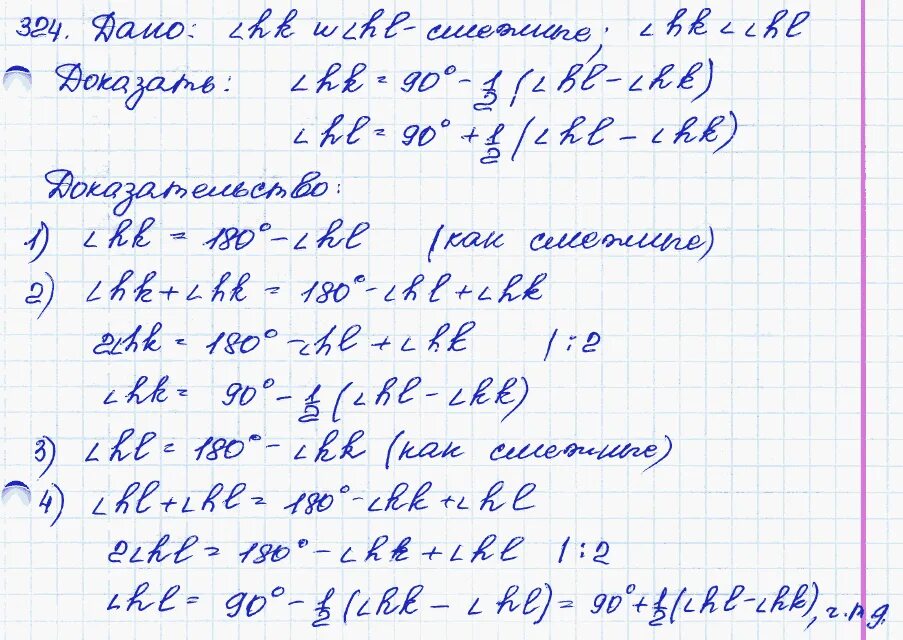 324. Дано: ∠hk и ∠hl - смежные; ∠hk < ∠hl
Доказать: ∠hk = 90° - 1/2 (∠hl - ∠hk)
∠hl = 90° + 1/2 (∠hl - ∠hk)
Доказательство:
1) ∠hk = 180° - ∠hl (как смежные)
2) ∠hk + ∠hk = 180° - ∠hl + ∠hk
2∠hk = 180° - ∠hl + ∠hk | : 2
∠hk = 90° - 1/2 (∠hl - ∠hk)
3) ∠hl = 180° - ∠hk (как смежные)
4) ∠hl + ∠hl = 180° - ∠hk + ∠hl
2∠hl = 180° - ∠hk + ∠hl | : 2
∠hl = 90° - 1/2 (∠hk - ∠hl) = 90° + 1/2 (∠hl - ∠hk), ч.т.д.